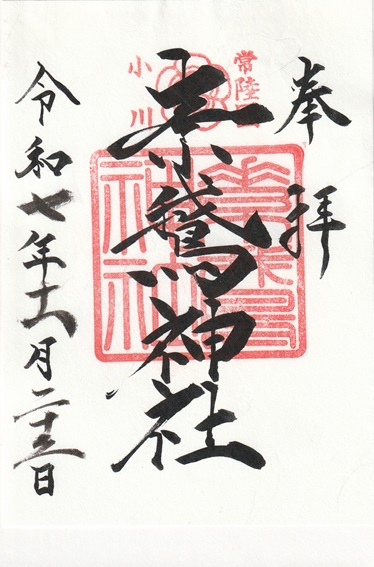 奉拝
常陸国
素鵞神社
小川
素鵞神社
令和七年十一月二十三日